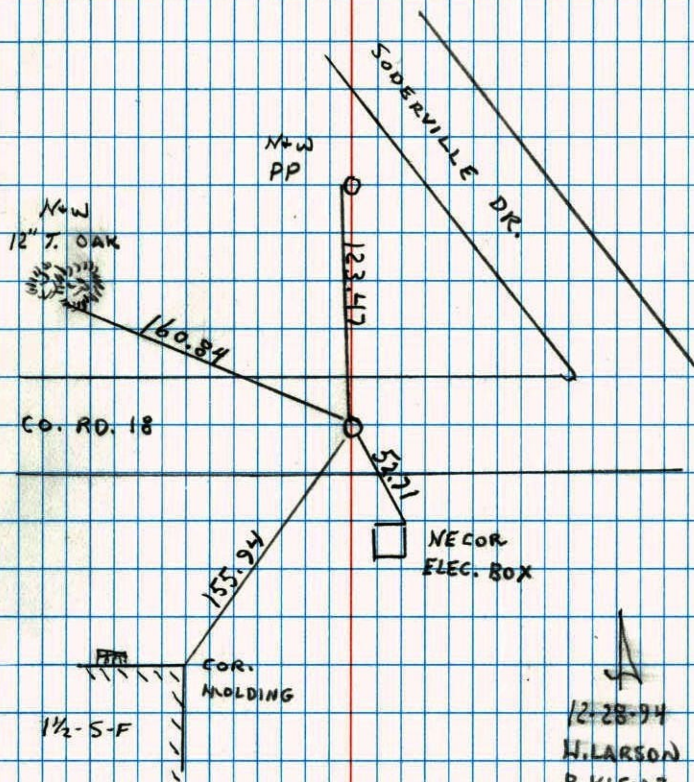 SODERVILLE DR.
N+W
PP
N+W
12" T. OAK
123.47
160.84
CO. RD. 18
52.71
NECOR
ELEC. BOX
155.94
COR.
MOLDING
1½-S-F
12-28-94
H.LARSON